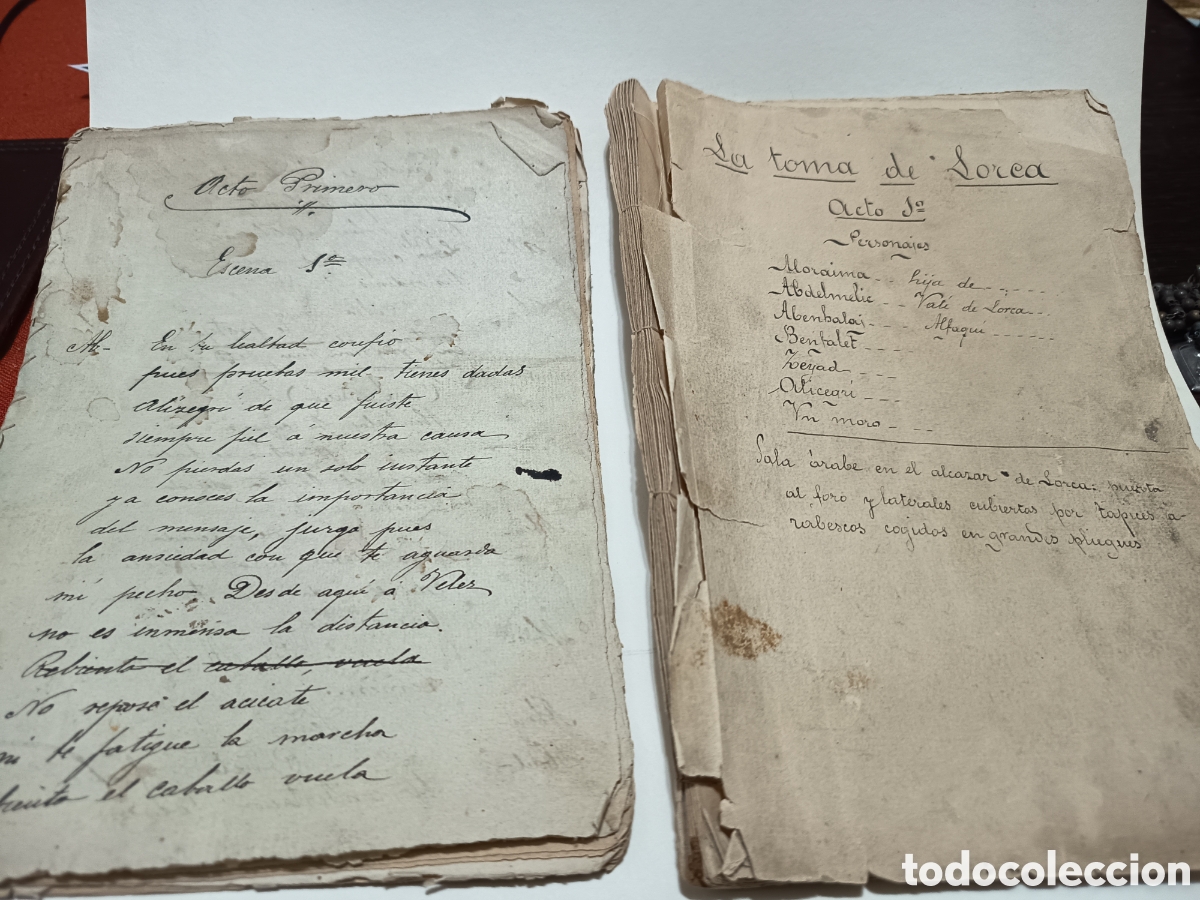 Acto Primero
Escena 1ª
Al- En tu lealtad confio
pues pruebas mil tienes dadas
Alizegrí de que fuiste
siempre fiel á nuestra causa
No pierdas un solo instante
ya conoces la importancia
del mensaje, juzga pues
la ansiedad con que te aguarda
mi pecho Desde aquí á Velez
no es inmensa la distancia.
Rebienta el caballo, vuela
No repose el acicate
ni te fatigue la marcha
el caballo vuela
La toma de Lorca
Acto 1º
Personajes
Moraima - - hija de - - - - -
Abdelmelic - - Valí de Lorca - - -
Abenbalaj - - - - Alfaquí - - - -
Benfalet - - - -
Zeyad - - - -
Alicegrí - - -
Un moro - - - -
Sala árabe en el alcazar de Lorca: puerta
al foro y laterales cubiertas por tapices a-
rabescos cogidos en grandes pliegues
todocoleccion